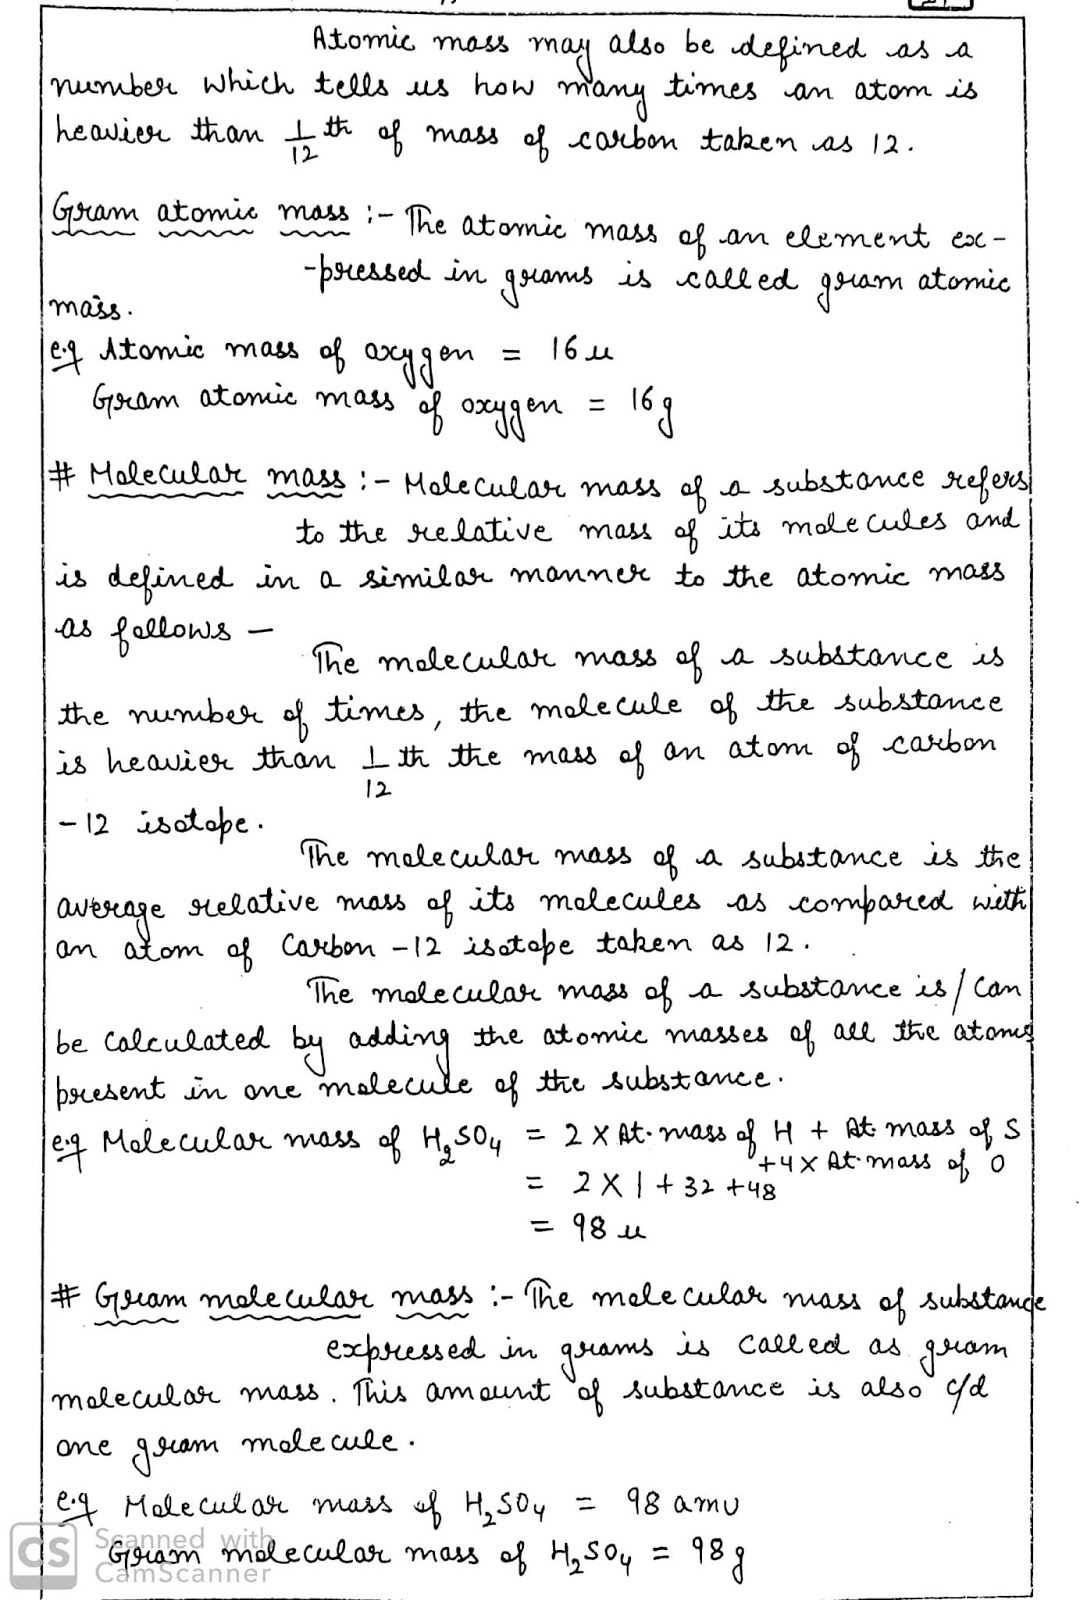 Atomic mass may also be defined as a
number which tells us how many times an atom is
heavier than 1/12 th of mass of carbon taken as 12.
Gram atomic mass :- The atomic mass of an element ex-
-pressed in grams is called gram atomic
mass.
e.g Atomic mass of oxygen = 16 u
Gram atomic mass of oxygen = 16g
# Molecular mass :- Molecular mass of a substance refers
to the relative mass of its molecules and
is defined in a similar manner to the atomic mass
as follows –
The molecular mass of a substance is
the number of times, the molecule of the substance
is heavier than 1/12 th the mass of an atom of carbon
-12 isotope.
The molecular mass of a substance is the
average relative mass of its molecules as compared with
an atom of Carbon -12 isotope taken as 12.
The molecular mass of a substance is/can
be calculated by adding the atomic masses of all the atoms
present in one molecule of the substance.
e.g Molecular mass of H₂SO₄ = 2 X At. mass of H + At. mass of S
+4X At. mass of O
= 2 X 1 + 32 +48
= 98 u
# Gram molecular mass :- The molecular mass of substance
expressed in grams is called as gram
molecular mass. This amount of substance is also c/d
one gram molecule.
e.g Molecular mass of H₂SO₄ = 98 amu
Gram molecular mass of H₂SO₄ = 98g
CS Scanned with
CamScanner